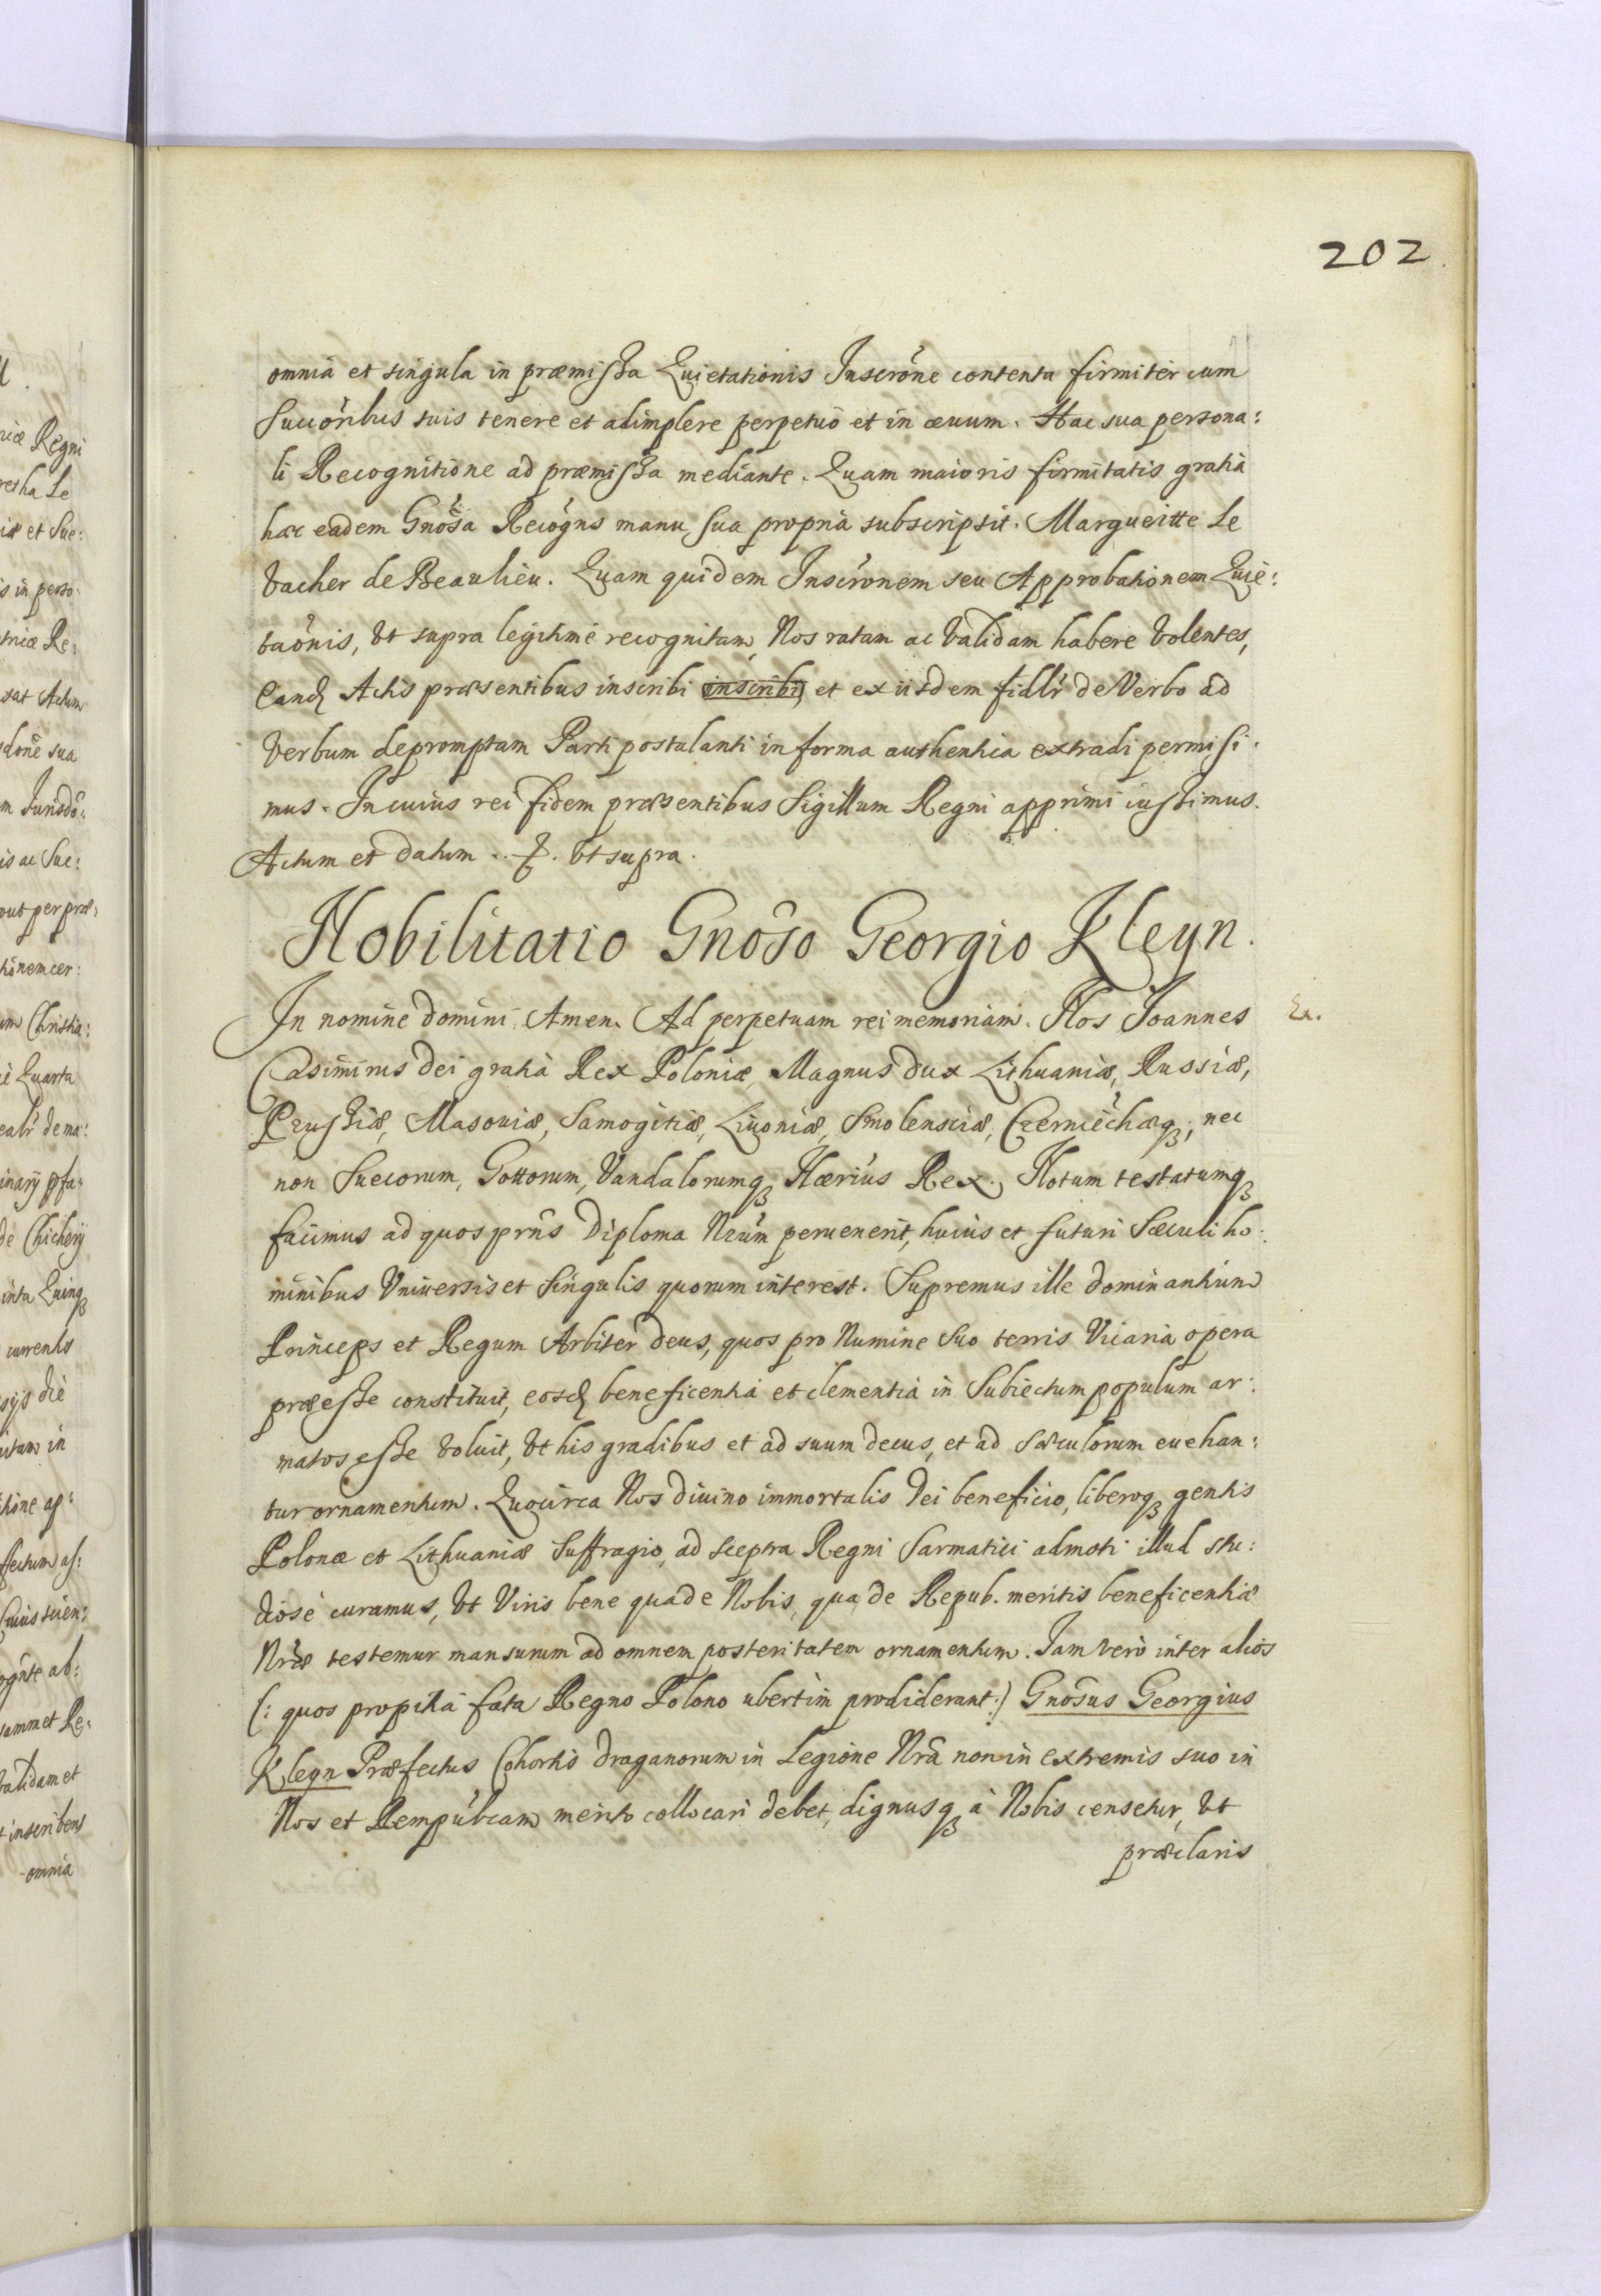 202
omnia et singula in præmissa Quietationis Inscrône contenta firmiter cum
Succôribus suis tenere et adimplere perpetuò et in æuum. Hac sua persona:
li Recognitione ad præmissa mediante. Quam maioris firmitatis gratiâ
hæc eadem Gnôsa Recôgns manu sua propriâ subscripsit. Margueitte Le
Vacher de Beaulieu. Quam quidem Inscrônem seu Approbationem Quie:
taônis, Vt supra legitimè recognitam, Nos ratam ac Validam habere Volentes,
Eandq Actis præsentibus inscribi inscribi, et ex iisdem fidlr de Verbo ad
Verbum depromptam Parti postulanti in forma authentica extradi permisi:
mus. In cuius rei fidem præsentibus Sigillum Regni apprimi iussimus.
Actum et datum Vt supra.
Nobilitatio Gnôso Georgio Kleyn.
In nomine Domini Amen. Ad perpetuam rei memoriam. Nos Joannes
Ex.
Casimirus Dei gratiâ Rex Poloniæ, Magnus Dux Lithuaniæ, Russiæ,
Prussiæ, Masouiæ, Samogitiæ, Liuoniæ, Smolensciæ, Czerniechæq3, nec
non Suecorum, Gottorum, Vandalorumq3 Hærius Rex. Notum testatumq3
facimus ad quos prñs Diploma Nrûm peruenerit, huius et futuri Sæculi ho:
minibus Vniuersis et Singulis quorum interest. Supremus ille Dominantium
Princeps et Regum Arbiter Deus, quos pro Numine Suo terris Vicaria opera
præesse constituit, eosdq beneficentiâ et clementiâ in Subiectum populum ar:
matos esse Voluit, Vt his gradibus et ad suum decus, et ad Sæculorum euehan:
tur ornamentum. Quocirca Nos diuino immortalis Dei beneficio, liberoq3 gentis
Polonæ et Lithuaniæ Suffragio, ad Sceptra Regni Sarmatici admoti illud stu:
diosè curamus, Vt Viris bene qua de Nobis, qua de Repub. meritis beneficentiæ
Nræ testemur mansurum ad omnem posteritatem ornamentum. Iam verò inter alios
(: quos propitia fata Regno Polono ubertim prodiderant:) Gnôsus Georgius
Kleyn Præfectus Cohortis Draganorum in Legione Nrâ non in extremis suo in
Nos et Rempûbcam merito collocari debet, dignusq3 à Nobis censetur, Vt
præclaris